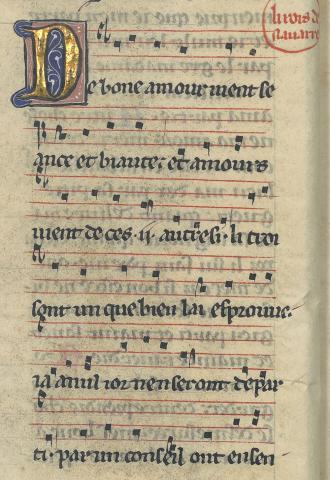 li rois de
nauarre
De bone amour uient se
ance et biaute; et amours
uient de ces .ii. autresi. li troi
sont un que bien lai esprouue.
ia a nul ior nen seront depar
ti. par un conseil ont ensen